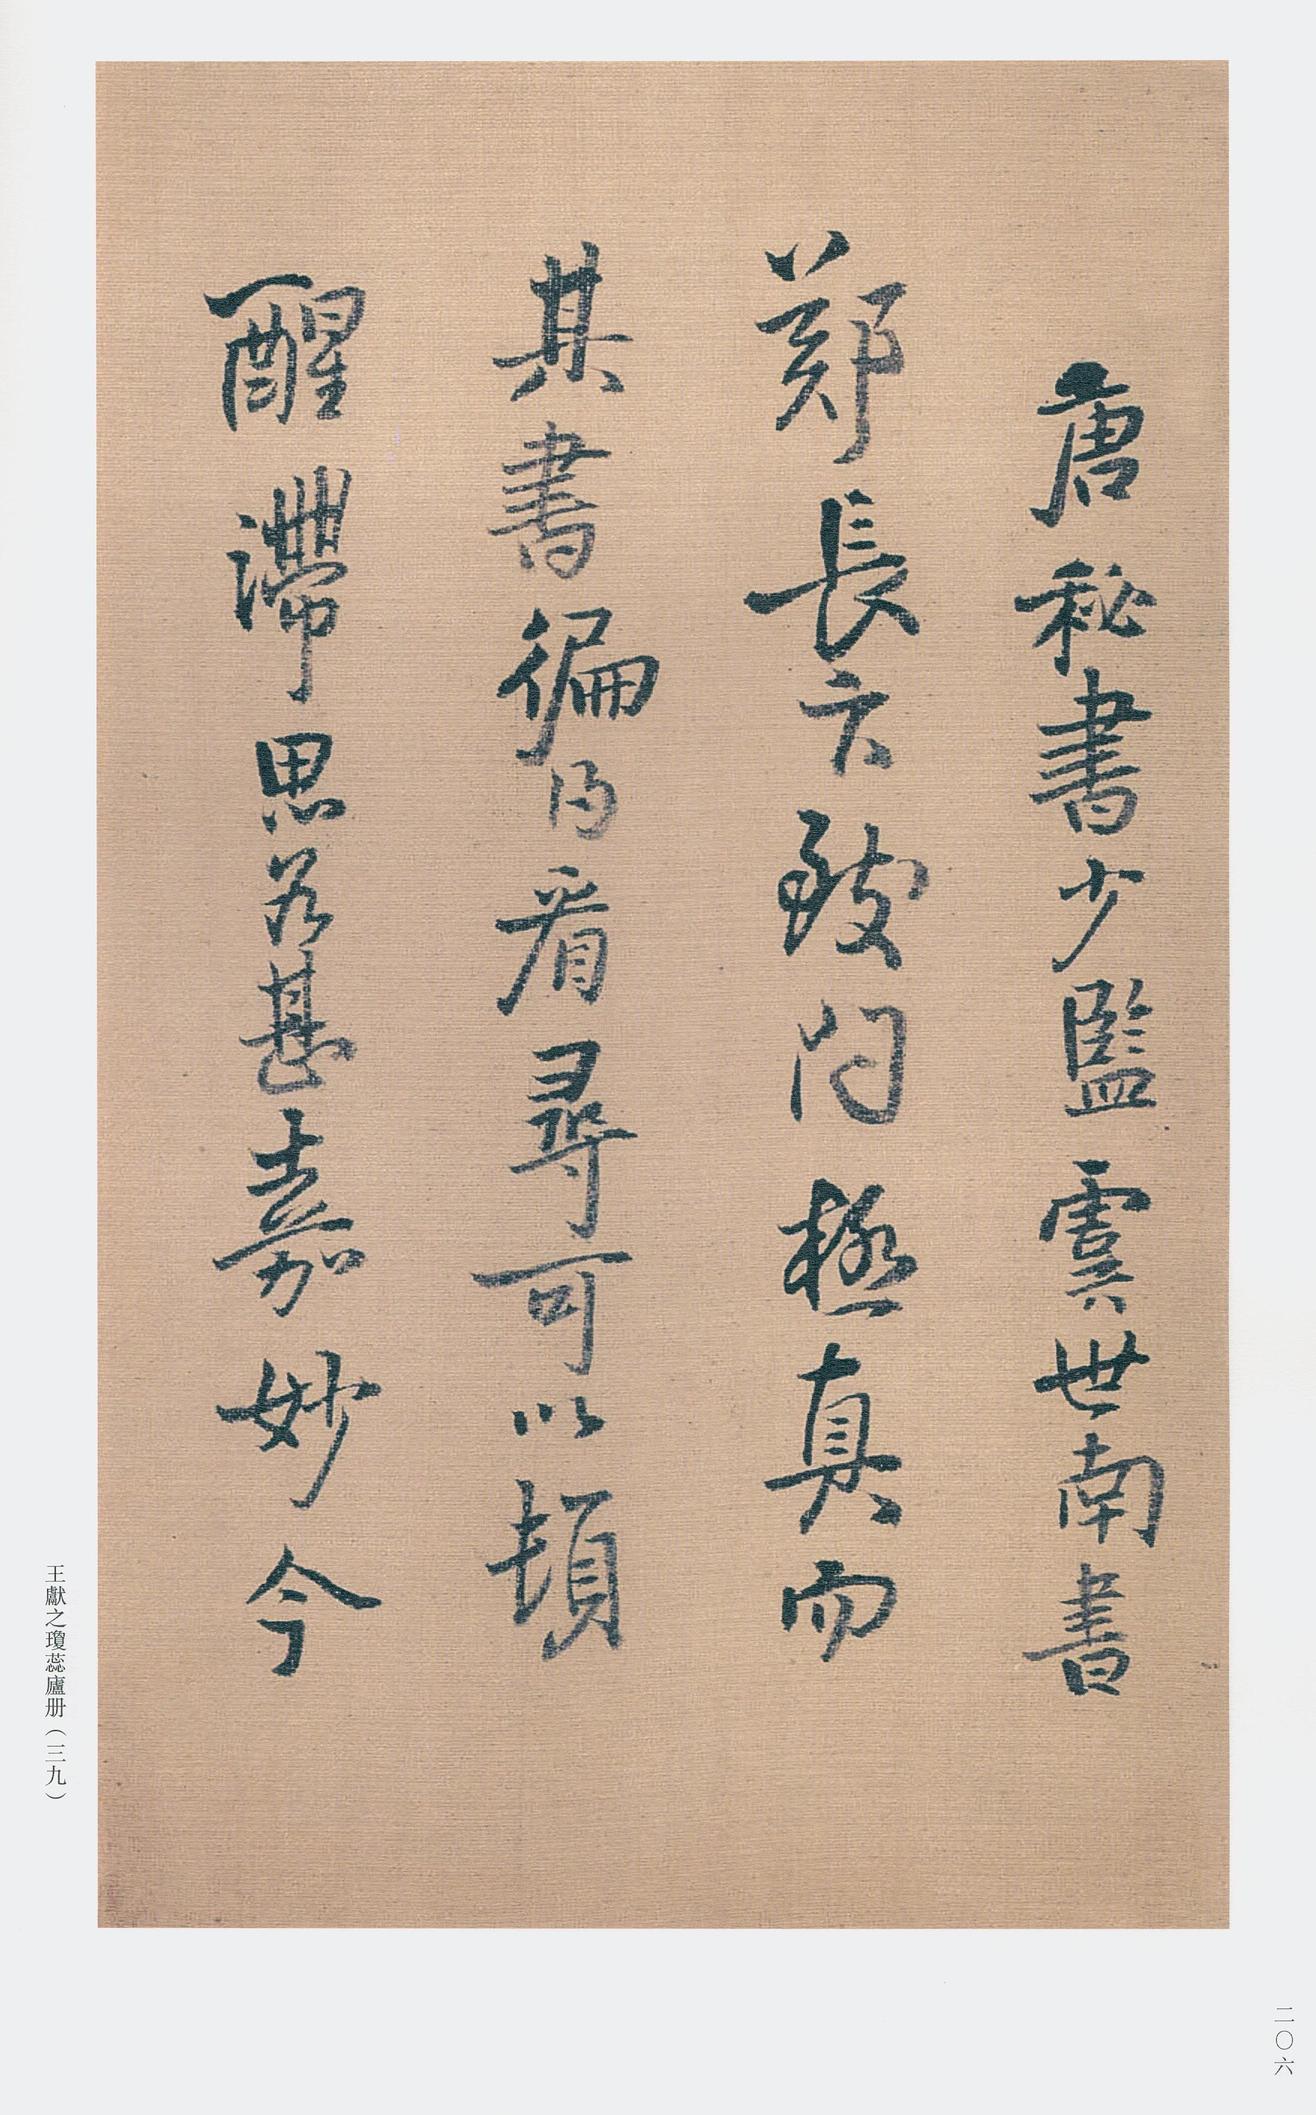 唐秘書少監虞世南書
鄭長六致問極真而
其書徧得看尋可以頓
醒滯思為甚嘉妙今
王獻之瓊蕊廬册（三九）
二〇六